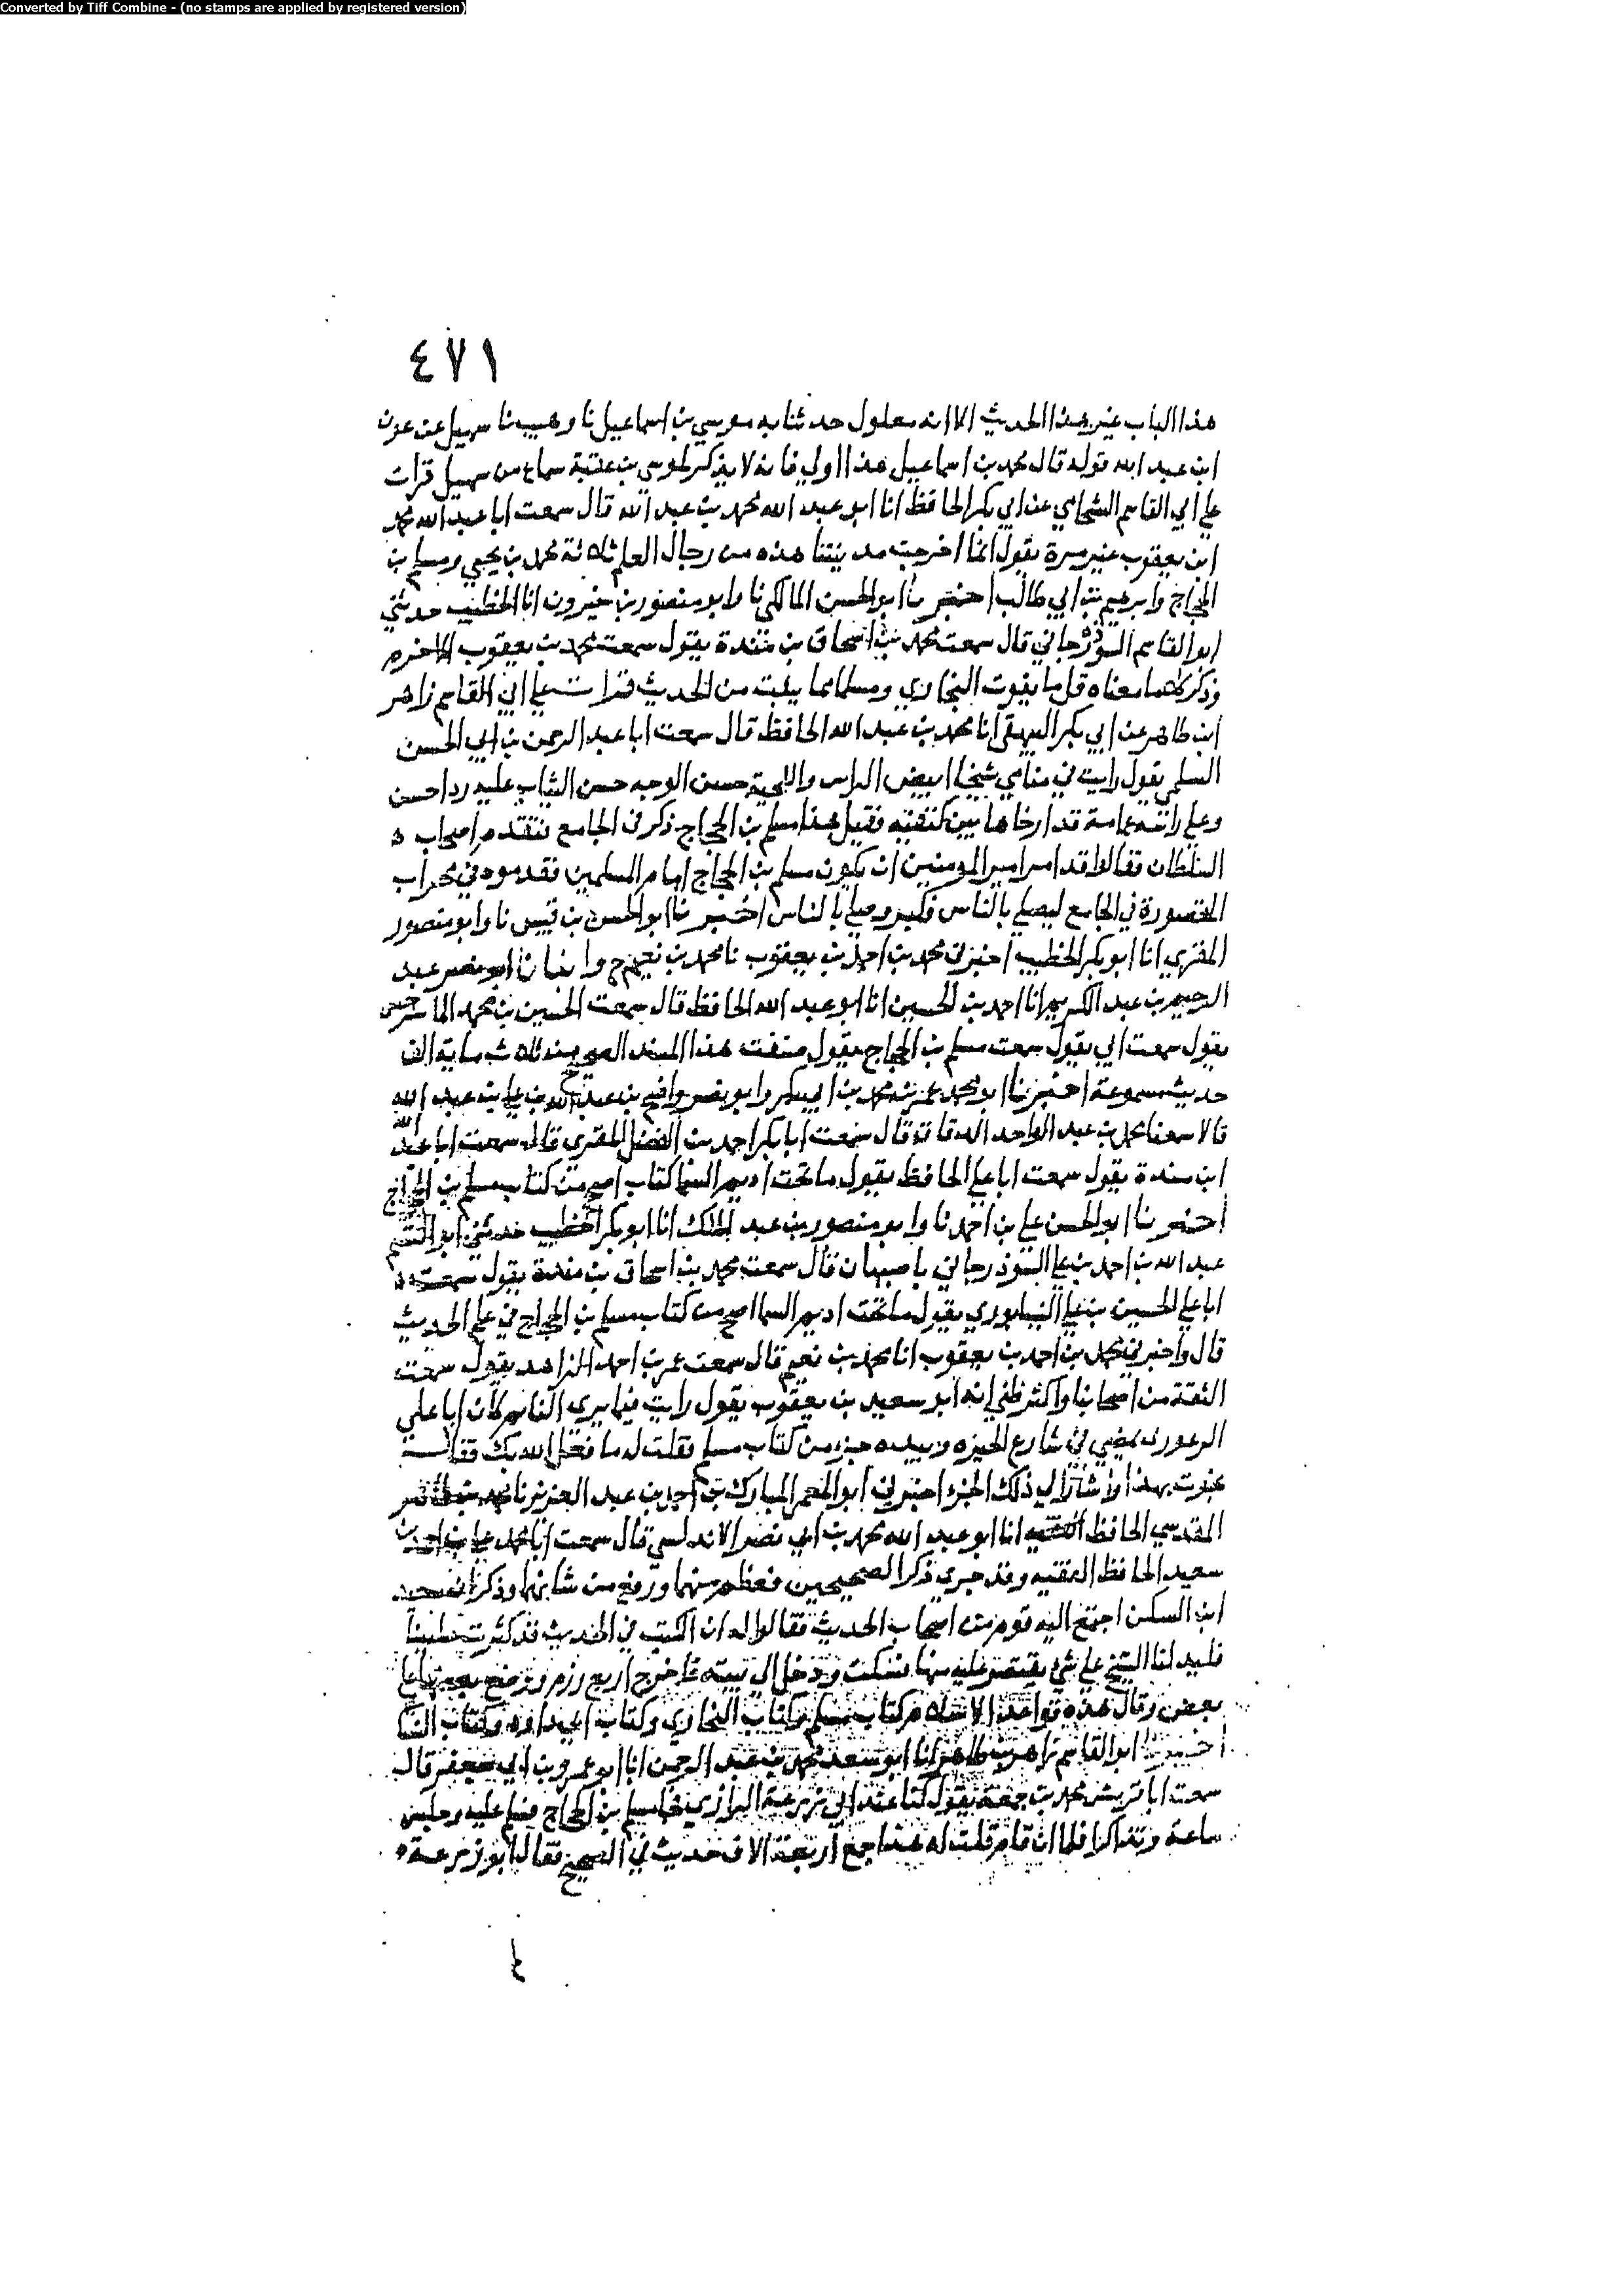 Converted by Tiff Combine - (no stamps are applied by registered version)
٤٧١
هذا الباب غير هذا الحديث الا انه معلول حدثنا به موسى بن اسماعيل نا وهيب نا سهيل عن عون
ابن عبد الله قوله قال محمد بن اسماعيل هذا اولي فانه لا يذكر لموسي بن عقبة سماع من سهيل قرات
علي ابي القاسم الشحامي عن ابي بكر الحافظ انا ابو عبد الله محمد بن عبد الله قال سمعت ابا عبد الله محمد
ابن يعقوب غير مرة يقول انما اخرجت مدينتنا هذه من رجال العلم ثلاثة محمد بن يحيي ومسلم بن
الحجاج وابرهيم بن ابي طالب اخبرنا ابو الحسن المالكي نا وابو منصور بن خيرون انا الخطيب حدثني
ابو القاسم السوذرجاني قال سمعت محمد بن اسحاق بن مندة يقول سمعت محمد بن يعقوب الاخرم
وذكر كلاما معناه قل ما يفوت البخاري ومسلما مما يثبت من الحديث قرات علي ابي القاسم زاهر
ابن طاهر عن ابي بكر البيهقي انا محمد بن عبد الله الحافظ قال سمعت ابا عبد الرحمن بن ابي الحسن
السلمي يقول رايت في منامي شيخا ابيض الراس واللحية حسن الوجه حسن الثياب عليه ردا حسن
وعلي راسه عمامة قد ارخاها بين كتفيه فقيل هذا مسلم بن الحجاج ذكر في الجامع فتقدم اصحاب ه
السلطان فقالوا قد امر امير المومنين ان يكون مسلم بن الحجاج امام المسلمين فقدموه في محراب
المقصورة في الجامع ليصلي بالناس فكبر وصلي بالناس اخبرنا ابو الحسن بن قبيس نا وابو منصور
المقري انا ابو بكر الخطيب اخبرني محمد بن احمد بن يعقوب نا محمد بن نعيم ح وانبانا ابو نصر عبد
الرحيم بن عبد الكريم انا احمد بن الحسين انا ابو عبد الله الحافظ قال سمعت الحسين بن محمد الماسرجسي
يقول سمعت ابي يقول سمعت مسلم بن الحجاج يقول صنفت هذا المسند الصحيح من ثلاث ماية الف
حديث مسموعة اخبرنا ابو محمد عمر بن محمد بن ابي بكر وابو نصر واضح بن عبد الله بن علي بن عبد الله
قالا سمعنا محمد بن عبد الواحد الدقاق قال سمعت ابا بكر احمد بن الفضل المقري قال سمعت ابا عبد الله
ابن مندة يقول سمعت ابا علي الحافظ يقول ما تحت اديم السما كتاب اصح من كتاب مسلم بن الحجاج
اخبرنا ابو الحسن علي بن احمد نا وابو منصور بن عبد الملك انا ابو بكر الخطيب حدثني ابو القسم
عبد الله بن احمد بن علي السوذرجاني باصبهان قال سمعت محمد بن اسحاق بن مندة يقول سمعت ه
ابا علي الحسين بن علي النيسابوري يقول ما تحت اديم السما اصح من كتاب مسلم بن الحجاج في علم الحديث
قال واخبرني محمد بن احمد بن يعقوب انا محمد بن نعيم قال سمعت عمر بن احمد الزاهد يقول سمعت
الثقة من اصحابنا واكثر ظني انه ابو سعيد بن يعقوب يقول رايت فيما يري النايم كان ابا علي
الزغوري يمضي في شارع الحيرة وبيده جزء من كتاب مسلم فقلت له ما فعل الله بك فقال
نجوت بهذا واشار الي ذلك الجزء اخبرني ابو المعمر المبارك بن احمد بن عبد العزيز نا محمد بن طاهر
المقدسي الحافظ انا ابو عبد الله محمد بن ابي نصر الاندلسي قال سمعت ابا محمد علي بن احمد بن
سعيد الحافظ الفقيه وقد جري ذكر الصحيحين فعظم منهما ورفع من شانهما وذكر ان سعيد
ابن السكن اجتمع اليه قوم من اصحاب الحديث فقالوا له ان الكتب في الحديث قد كثرت علينا
فليدلنا الشيخ علي شي يقتصر عليه منها فسكت ودخل الي بيته فاخرج اربع رزم ووضع بعضها علي
بعض وقال هذه قواعد الاسلام كتاب مسلم وكتاب البخاري وكتاب ابي داود وكتاب النسا
اخبرنا ابو القاسم زاهر بن طاهر انا ابو سعد محمد بن عبد الرحمن انا ابو عمرو بن ابي جعفر قال
سمعت ابا قريش محمد بن جمعة يقول كنا عند ابي زرعة الرازي فجا مسلم بن الحجاج فسلم عليه وجلس
ساعة وتذاكرا فلما ان قام قلت له هذا جمع اربعة الاف حديث في الصحيح فقال ابو زرعة ه